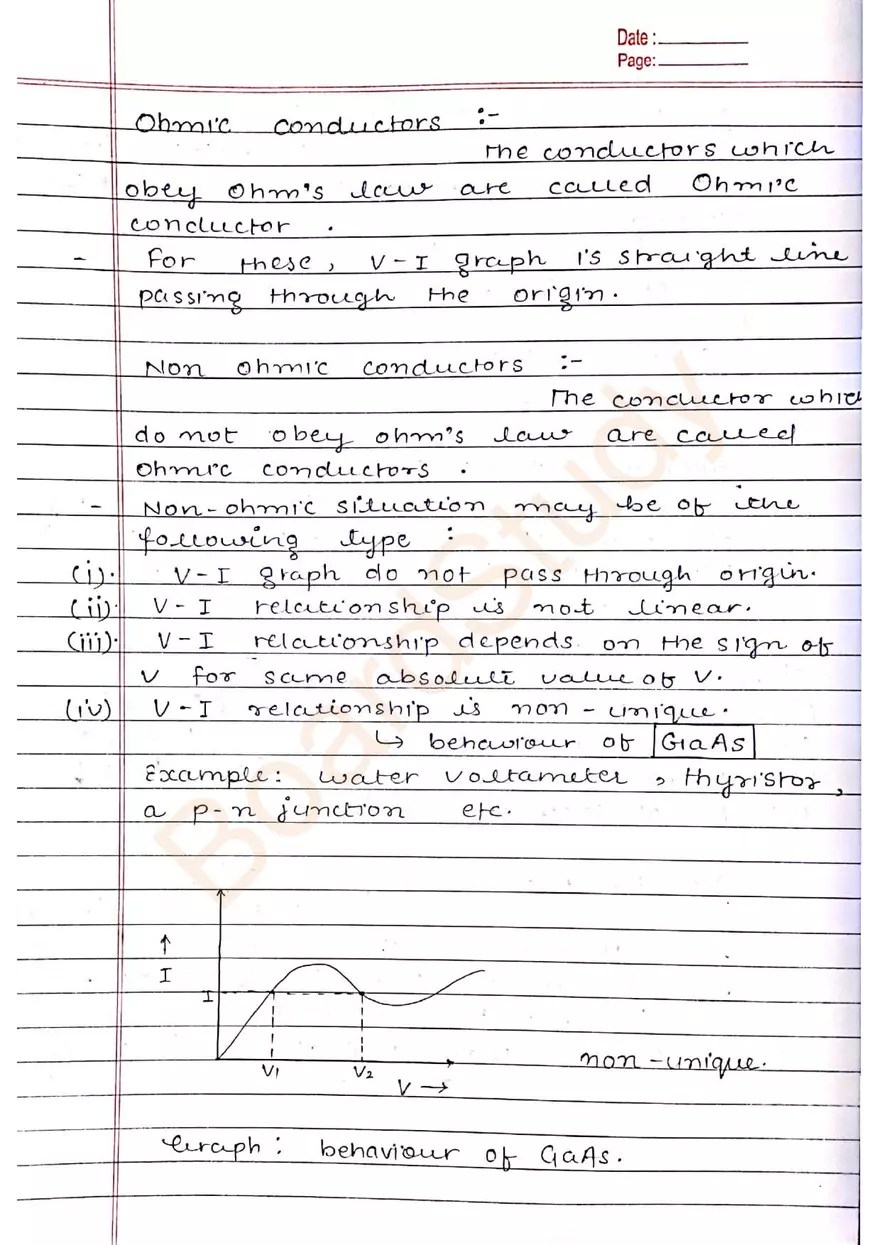 Date :
Page:
Ohmic conductors :-
The conductors which
obey Ohm's law are called Ohmic
conductor .
- For these, V-I graph is straight line
passing through the origin.
Non ohmic conductors :-
The conductor which
do not obey ohm's law are called
ohmic conductors .
- Non-ohmic situation may be of the
following type :
(i). V-I graph do not pass through origin.
(ii). V-I relationship is not linear.
(iii). V-I relationship depends on the sign of
V for same absolute value of V.
(iv) V-I relationship is non-unique.
↳ behaviour of GaAs
Example: water voltameter, thyristor,
a p-n junction etc.
↑
I
I
V1 V2
V →
non-unique.
Graph: behaviour of GaAs.
BoardStudy